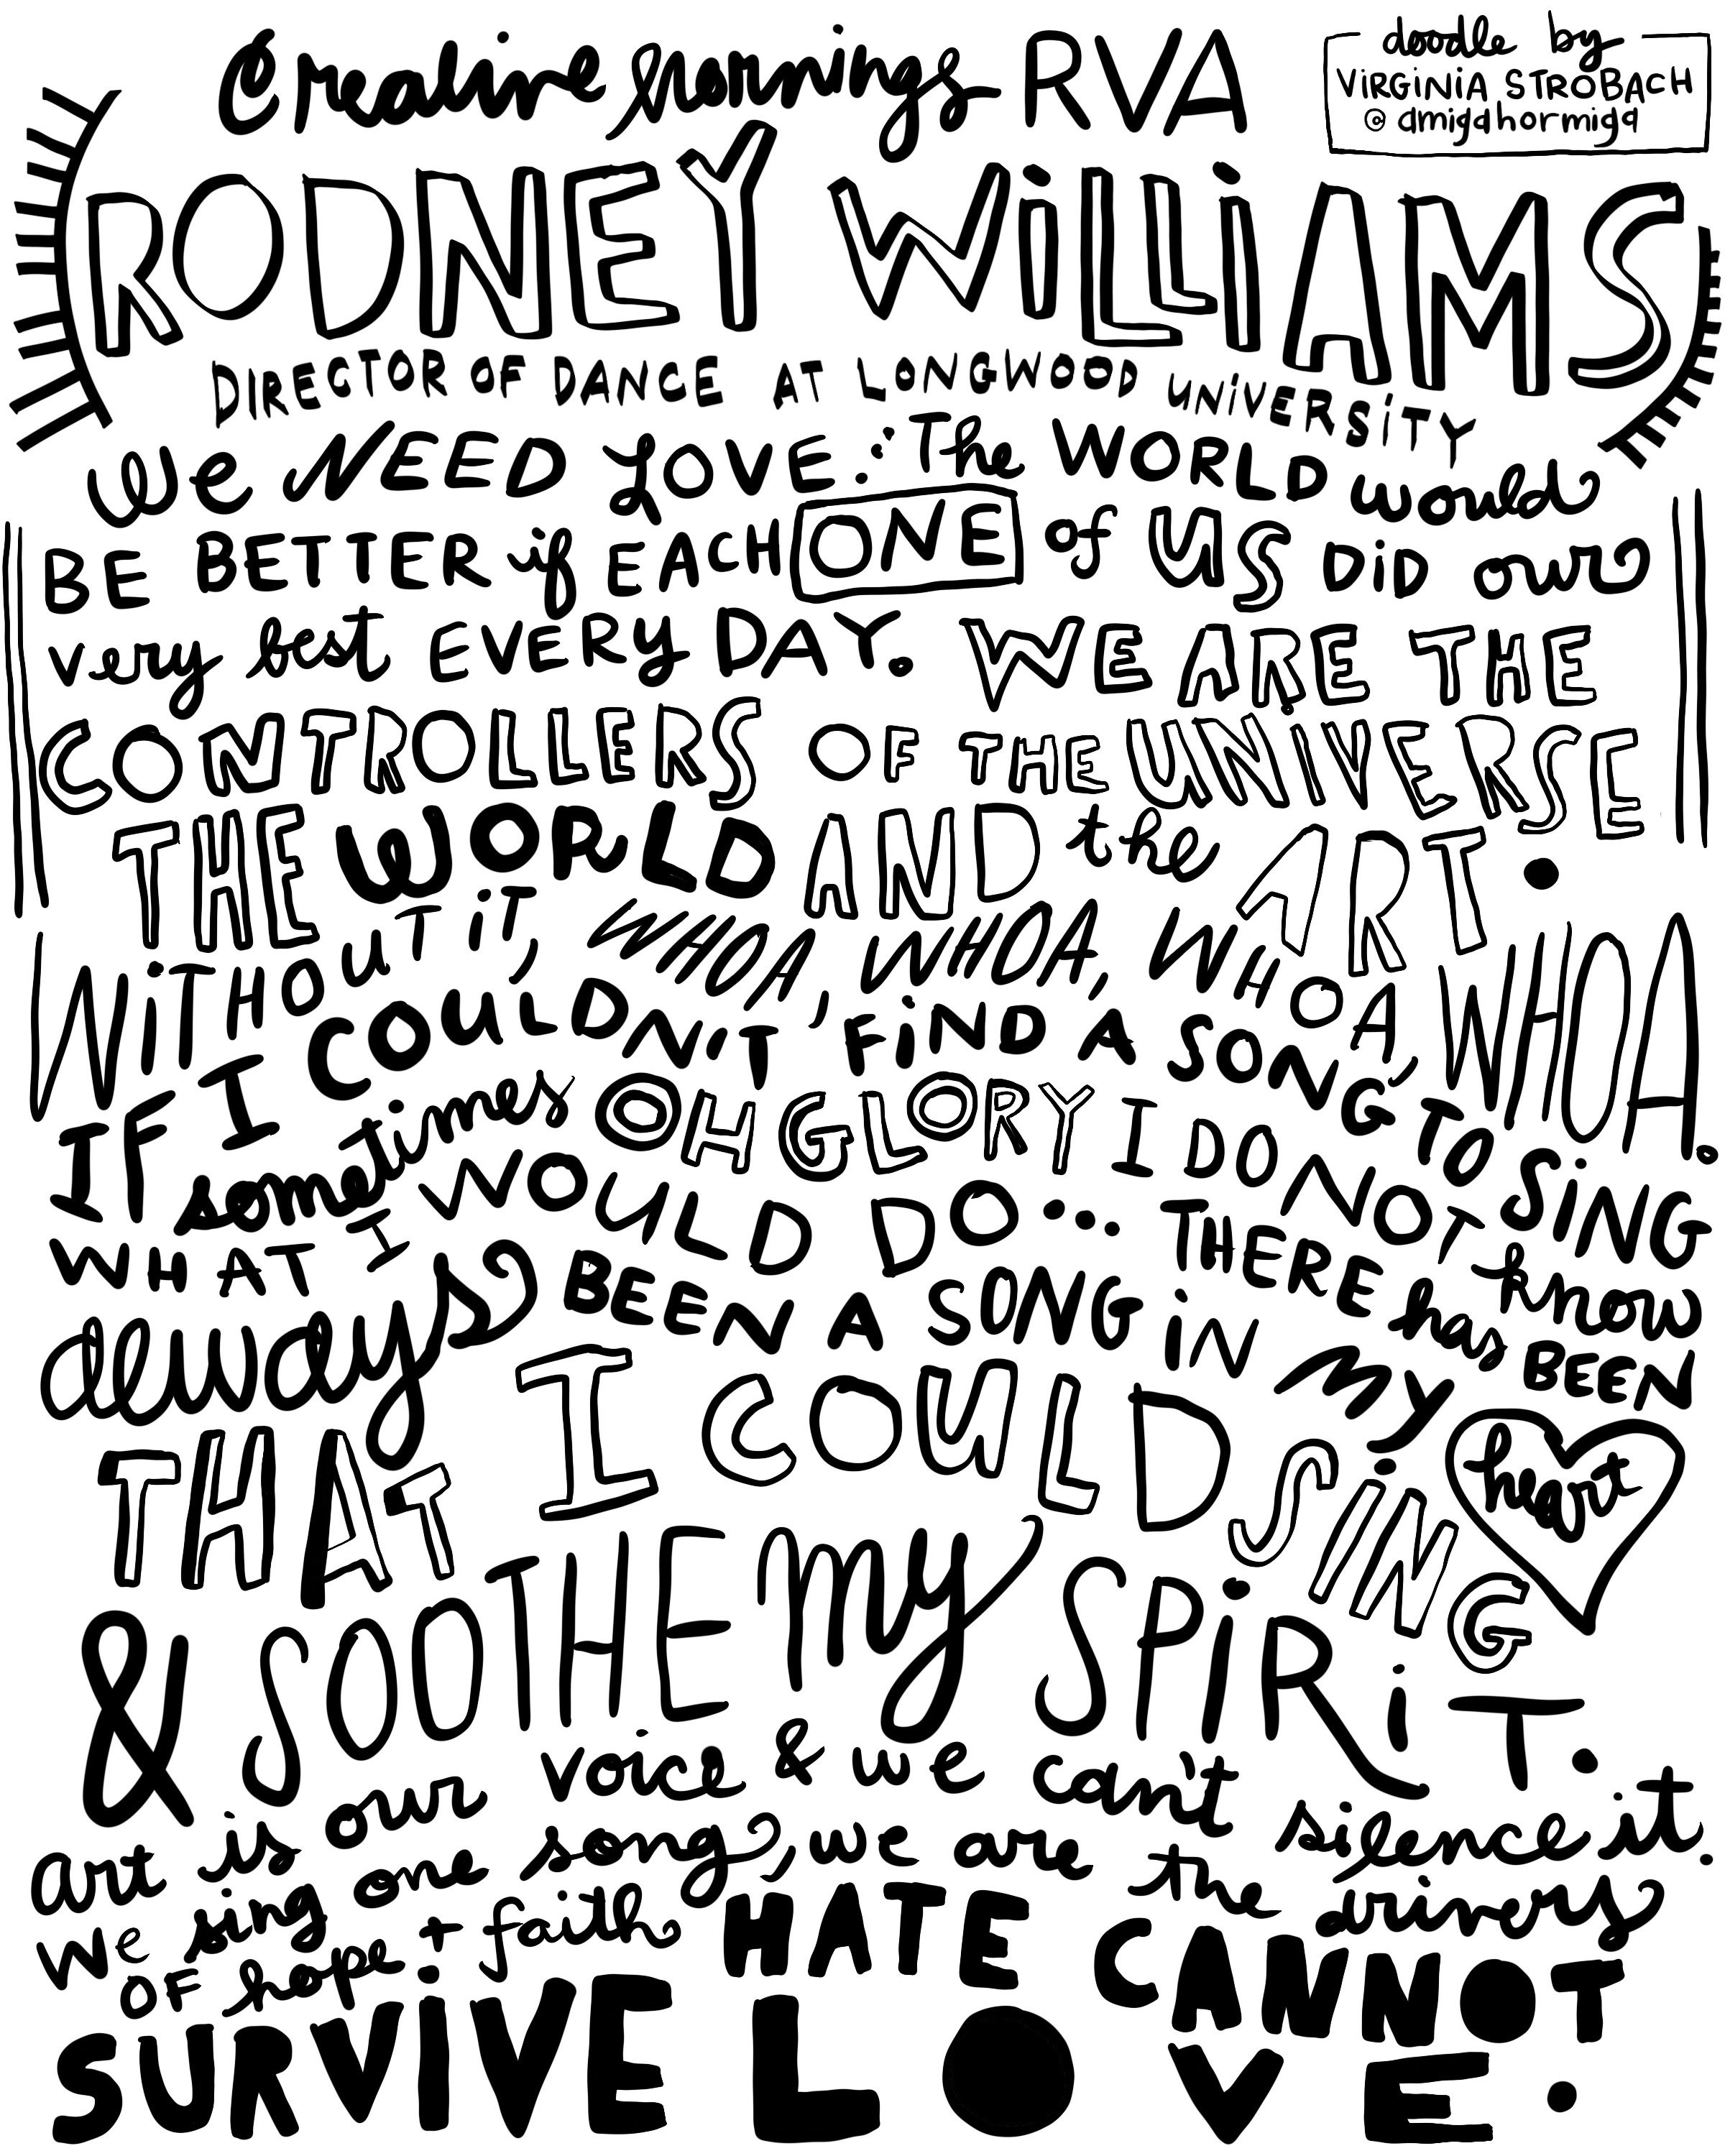 Creative Mornings RVA
doodle by
VIRGINIA STROBACH
@ amigahormiga
RODNEY WILLIAMS
DIRECTOR OF DANCE AT LONGWOOD UNIVERSITY
We NEED LOVE. The WORLD would
BE BETTER if EACH ONE of US DID our
very best EVERY DAY. WE ARE THE
CONTROLLERS OF THE UNIVERSE
THE WORLD AND the ART.
WITHOUT IT, WHOA, WHOA, WHOA, WHOA.
IF I COULDN'T FIND A SONG TO SING
sometimes OH GLORY I DO NOT know
WHAT I WOULD DO... THERE has BEEN
always BEEN A SONG IN MY heart
THAT I COULD SING
& SOOTHE my SPIRIT.
art is our voice & we can't silence it.
We sing one song, we are the armory
OF hope + faith HATE CANNOT
SURVIVE LOVE.